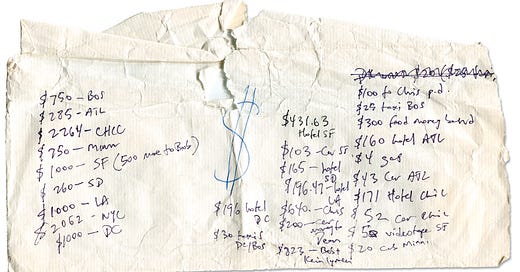 $750 - BOS
$285 - ATL
$2264 - CHIC
$750 - Minn
$1000 - SF (500 more to Bob)
$260 - SD
$1000 - LA
$2062 - NYC
$1000 - DC
$
$196 hotel
DC
$30 taxis
DC/BOS
$431.63
Hotel SF
$103 - Car SF
$165 - hotel
SD
$196.47 - hotel
LA
$640 - Chris
$200 - Car
Venn
$923 - Best
Kevin Lyman
$100 to Chris p.d.
$25 taxi BOS
$300 food money band
$160 hotel ATL
$4 gas
$43 Car ATL
$171 Hotel Chic
$52 Car Chic
videotape SF
$20 cab Minn